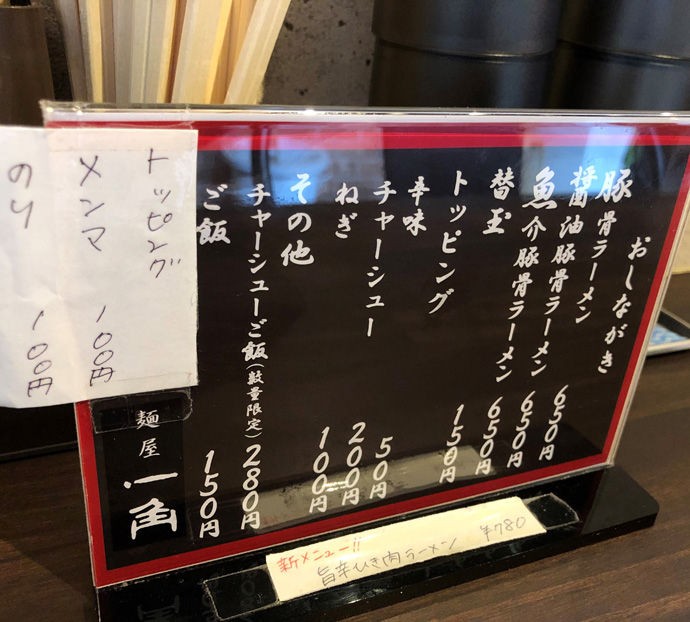 おしながき
豚骨ラーメン 650円
醤油豚骨ラーメン 650円
魚介豚骨ラーメン 650円
替玉 150円
トッピング
辛味 50円
チャーシュー 200円
ねぎ 100円
その他
チャーシューご飯(数量限定) 280円
ご飯 150円
麺屋 一角
トッピング
メンマ 100円
のり 100円
新メニュー!!
旨辛ひき肉ラーメン ¥780